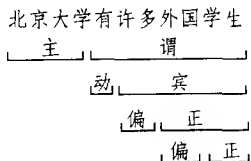 北京大学有许多外国学生
主 谓
动 宾
偏 正
偏 正